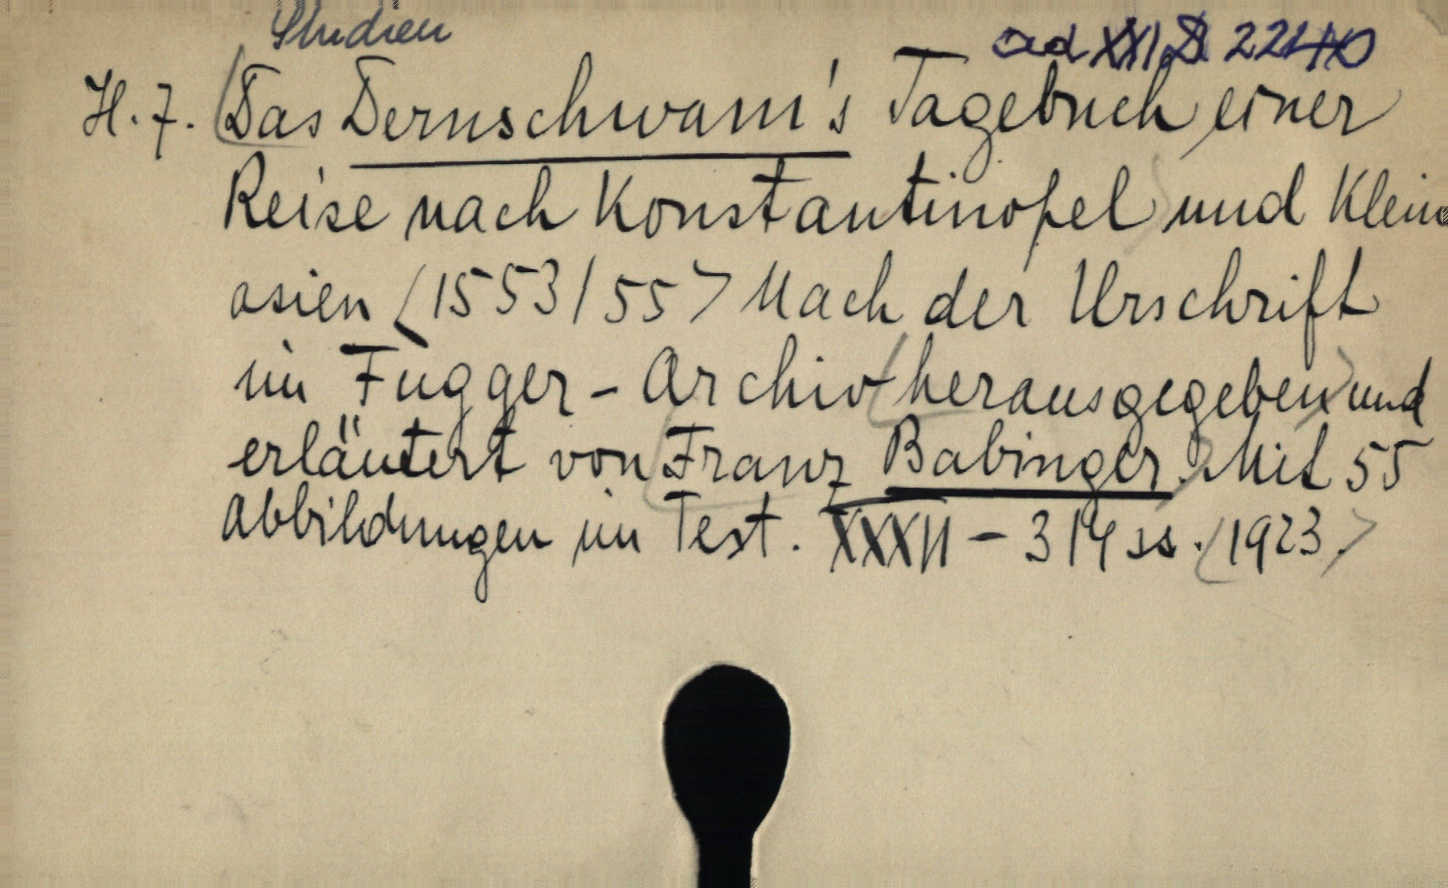 Studien
ad XXI D 2240
H. 7. (Das Dernschwam's Tagebuch einer
Reise nach Konstantinopel) und Klein
asien <1553/55> Nach der Urschrift
im Fugger-Archiv <herausgegeben> und
erläutert von <Franz Babinger.> Mit 55
Abbildungen im Test. XXXVI - 314 ss. <1923.>